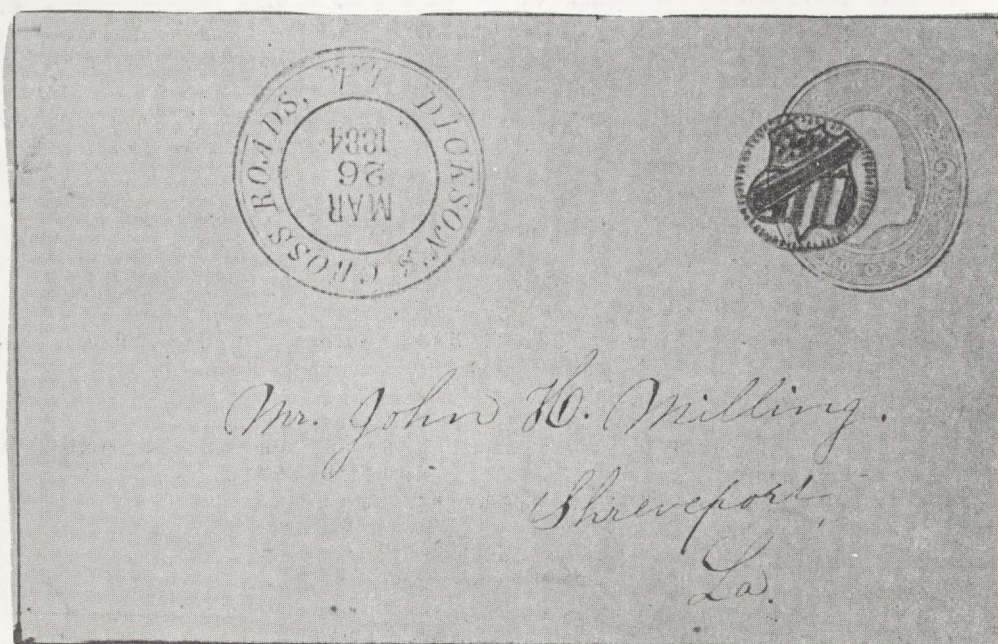 DICKSON'S CROSS ROADS,
MAR
26
1884
Mr. John H. Milling.
Shreveport,
La.